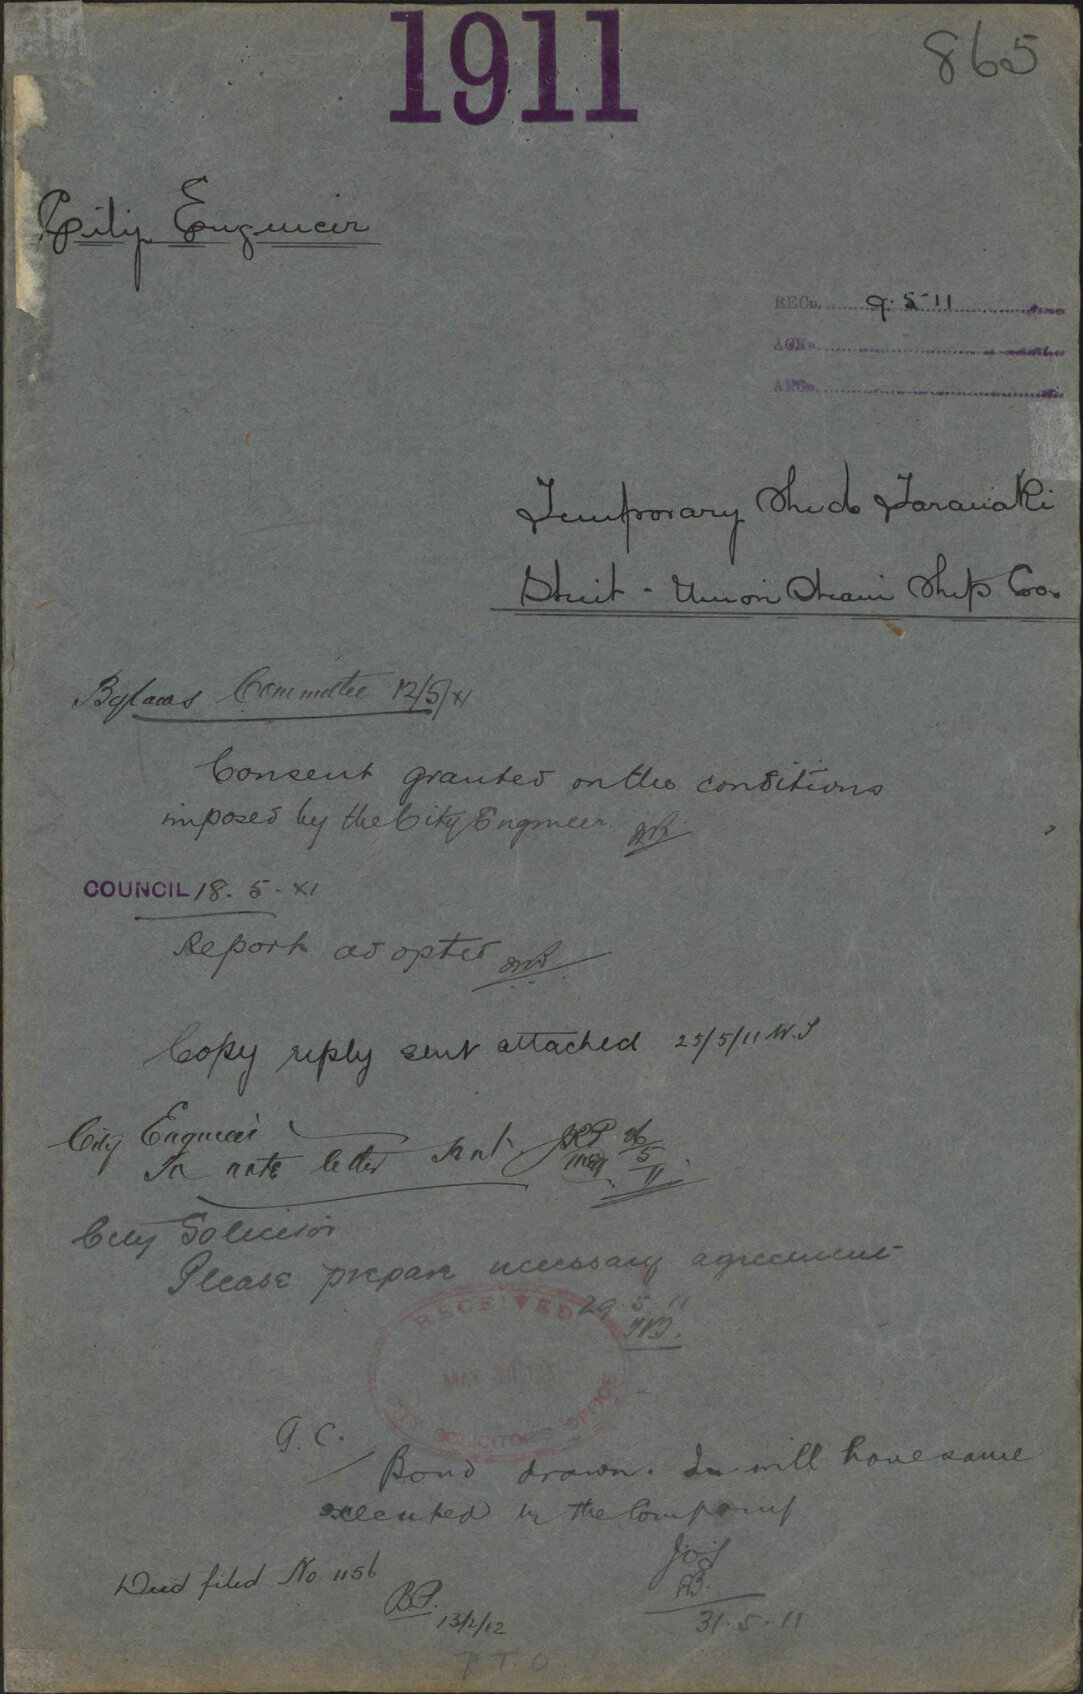 1911
865
City Engineer
RECD. 9.5.11
ACKD.
ANSD.
Temporary Sheds Taranaki
Street - Union Steam Ship Co.
Bylaws Committee 12/5/XI
Consent granted on the conditions
imposed by the City Engineer
COUNCIL 18. 5 - XI
Report adopted
Copy reply sent attached 25/5/11 W.S
City Engineer
To note letter sent JRP 26/5/11
City Solicitor
Please prepare necessary agreement
29.5.11
RECEIVED
MAY
CITY SOLICITOR'S OFFICE
Bond drawn. will have same
executed by the Company
31-5-11
Deed filed No 1156
13/2/12
P.T.O